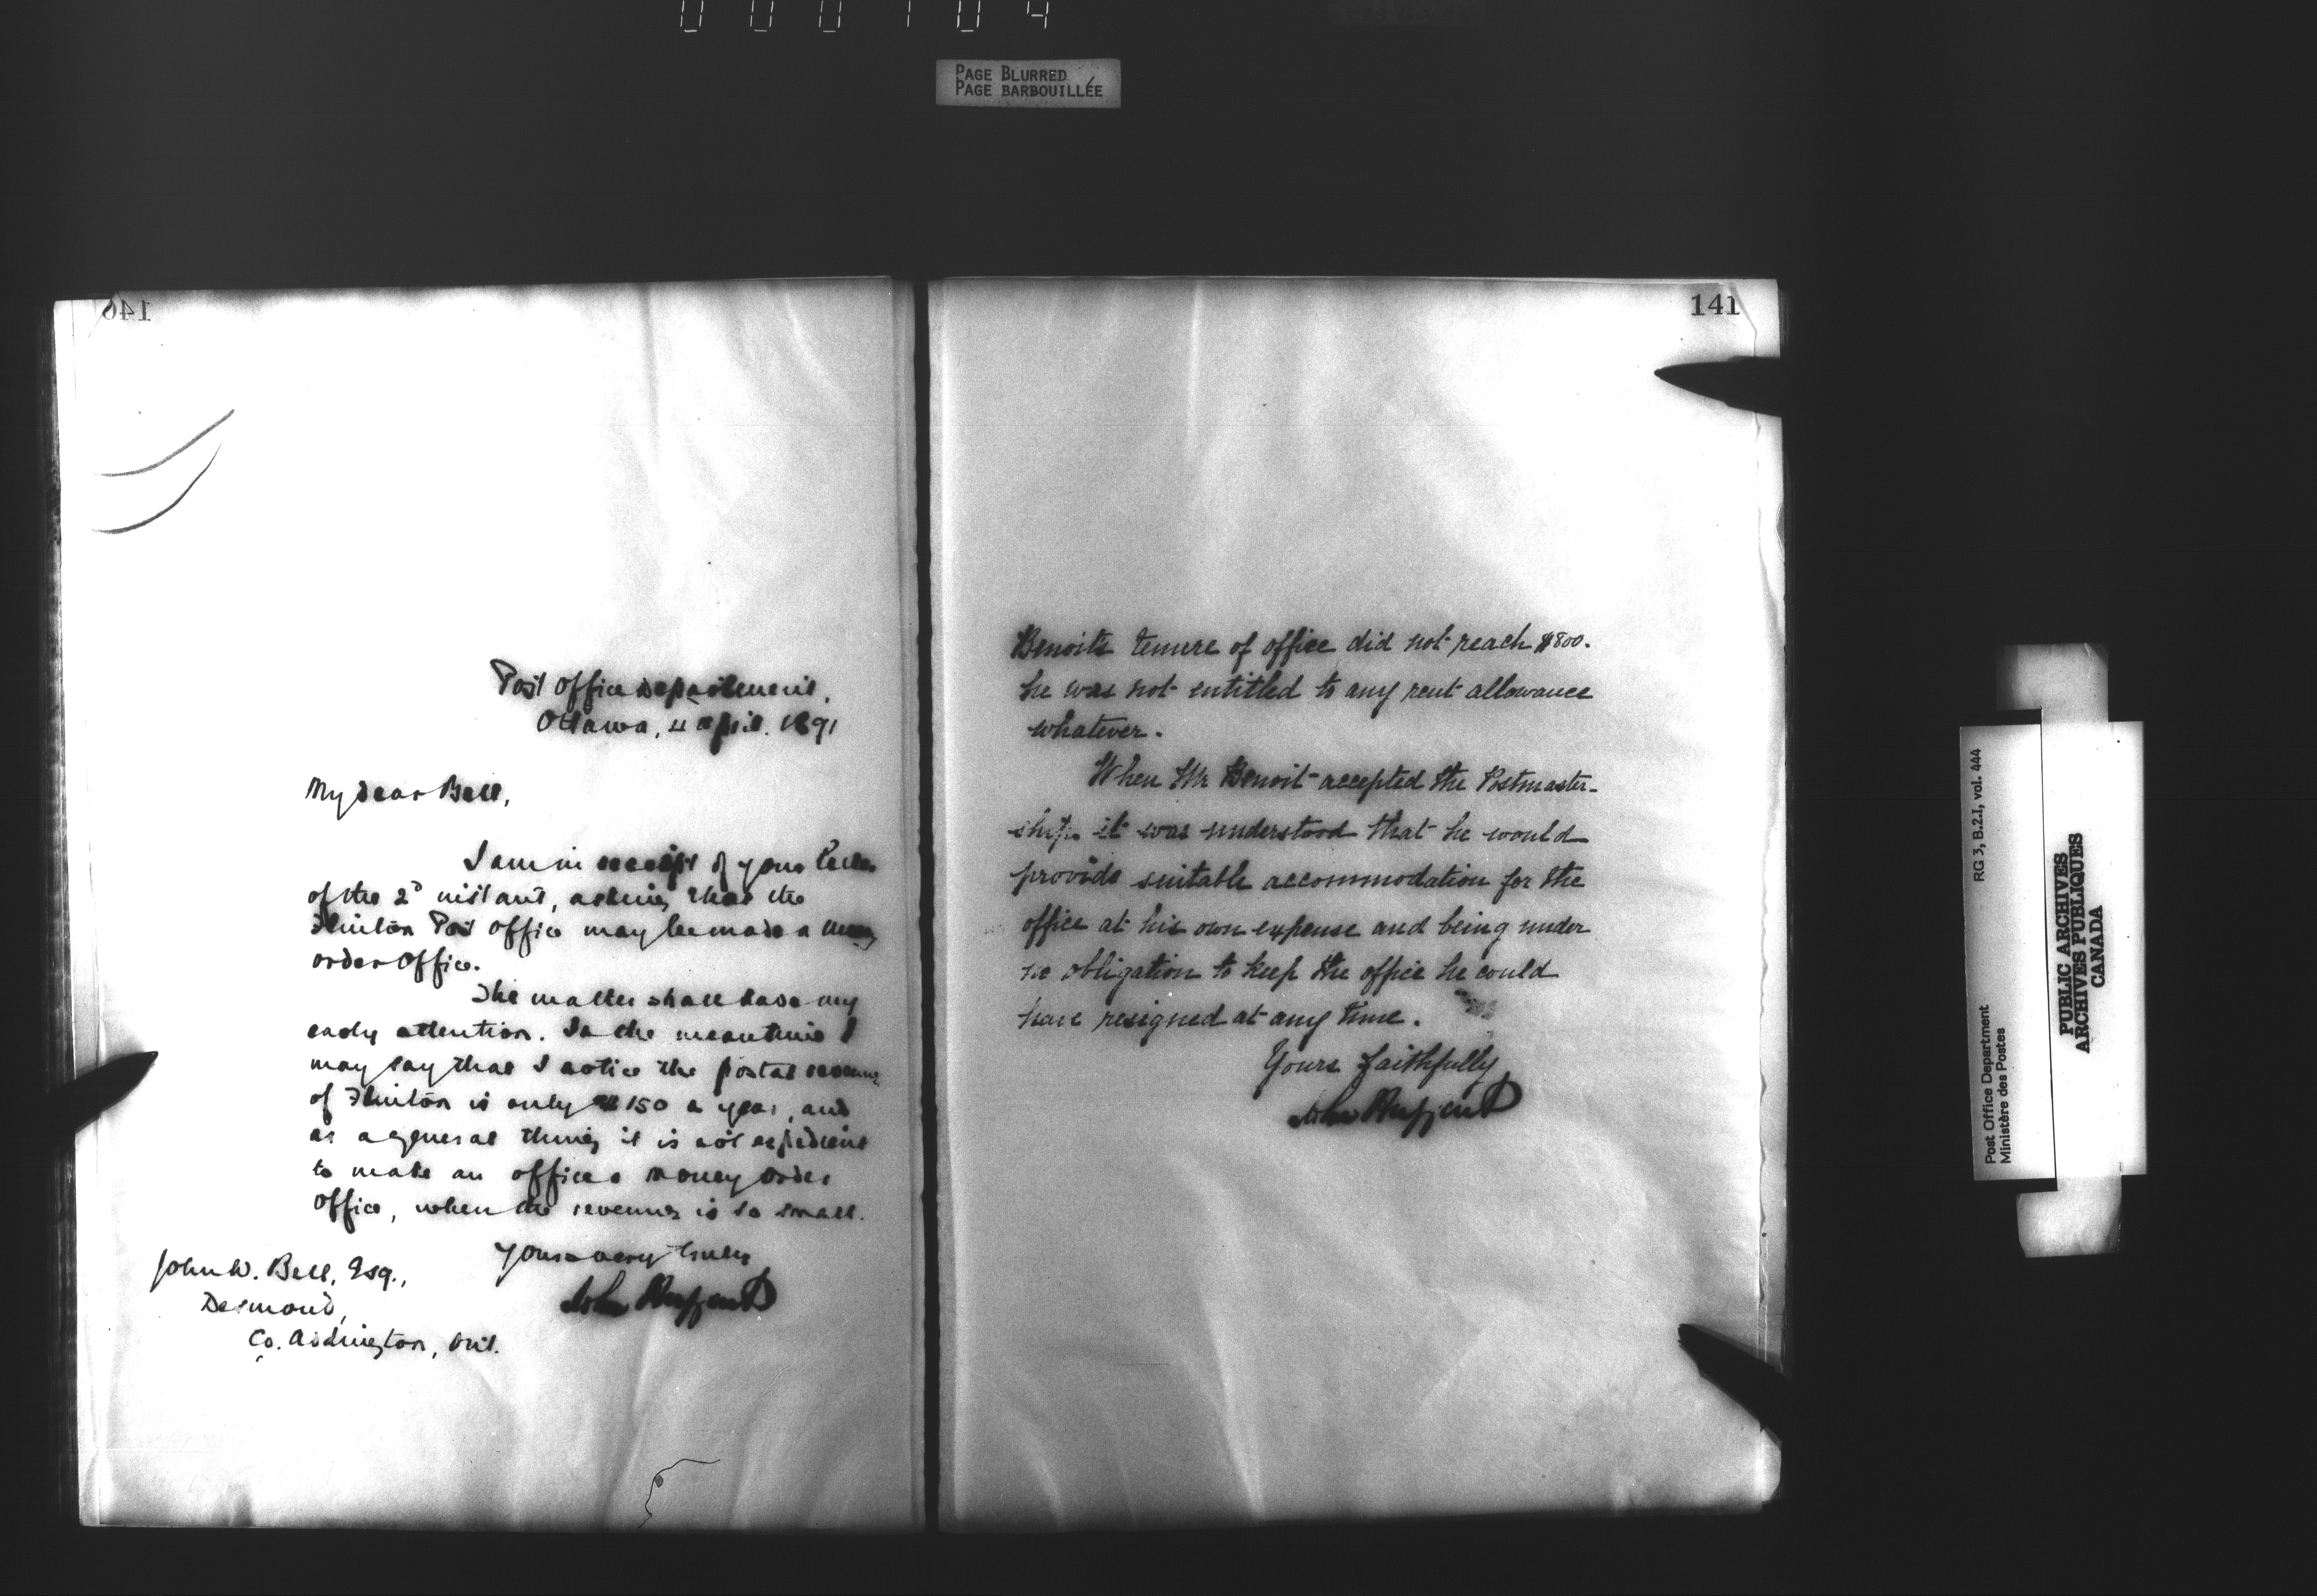 PAGE BLURRED
PAGE BARBOUILLÉE
140
Post Office Department,
Ottawa, 4 April. 1891
My dear Bell,
I am in receipt of your letter
of the 2d instant, asking that the
Flinton Post Office may be made a money
order office.
The matter shall have my
early attention. In the meantime I
may say that I notice the postal revenue
of Flinton is only $150 a year, and
as a general thing it is not expedient
to make an office a money order
office, when the revenue is so small.
Yours very truly
John Haggart
John W. Bell, Esq.,
Desmond,
Co. Addington, Ont.
141
Benoit's tenure of office did not reach $800.
he was not entitled to any rent allowance
whatever.
When Mr Benoit accepted the Postmaster-
ship it was understood that he would
provide suitable accommodation for the
office at his own expense and being under
no obligation to keep the office he could
have resigned at any time.
Yours faithfully
John Haggart
Post Office Department
Ministère des Postes
RG 3, B.2.1, vol. 444
PUBLIC ARCHIVES
ARCHIVES PUBLIQUES
CANADA